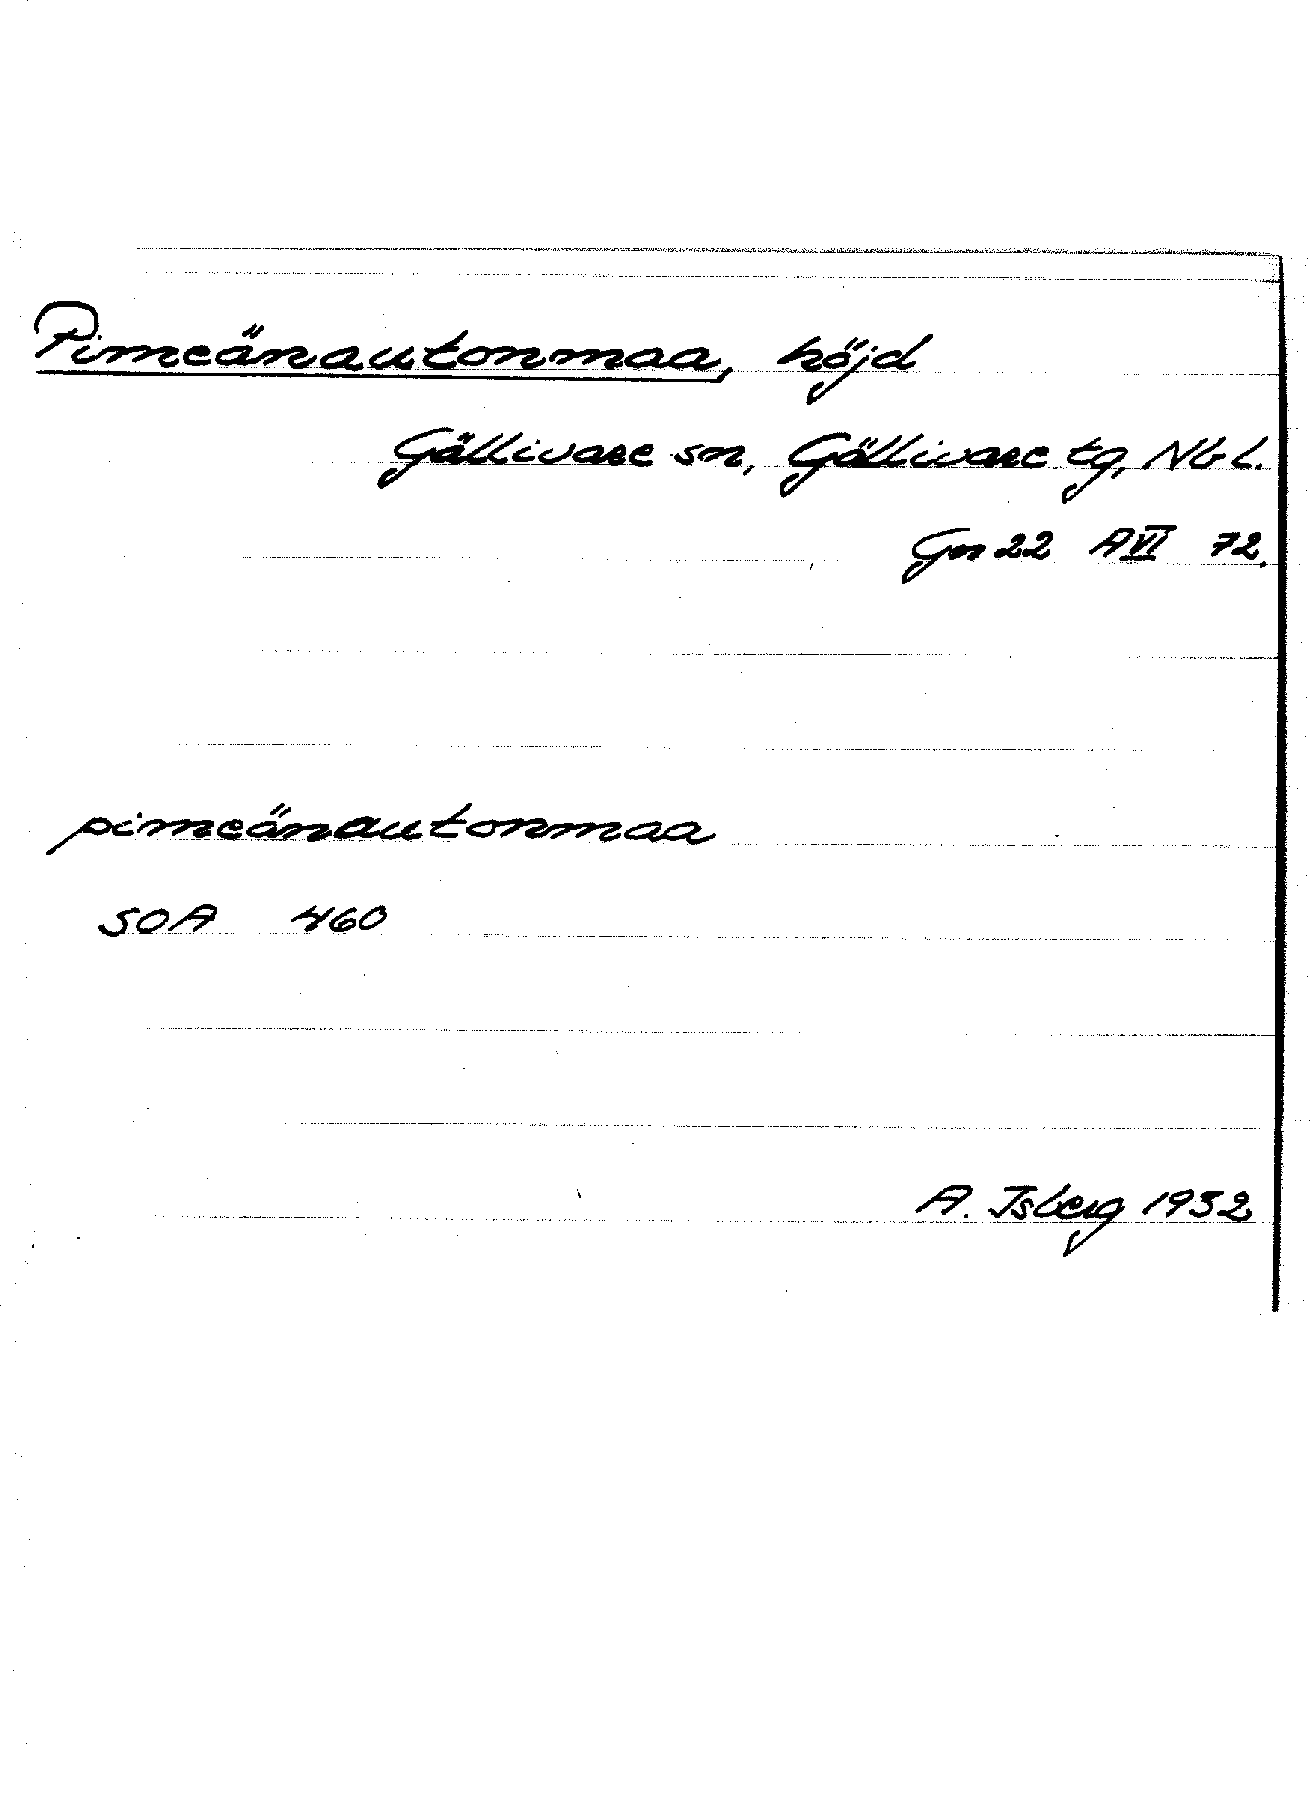 Pimeänautonmaa, höjd
Gällivare sn, Gällivare tg, Nb l.
Gn 22 A VI 72.
pimeänautonmaa
SOA 460
A. Isberg 1932